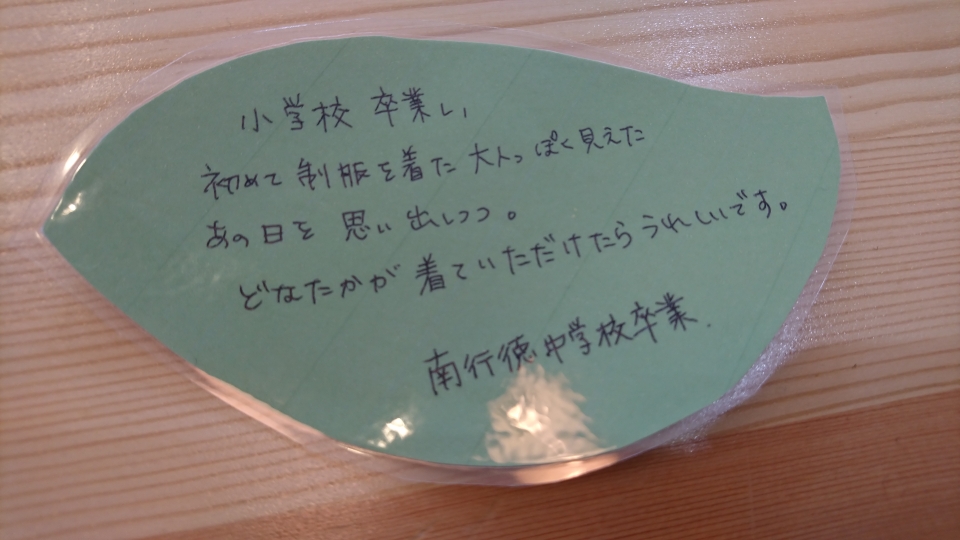 小学校 卒業し、
初めて制服を着た大人っぽく見えた
あの日を思い出しつつ。
どなたかが着ていただけたらうれしいです。
南行徳中学校卒業.